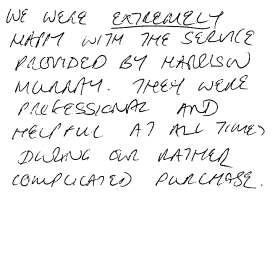 WE WERE EXTREMELY
HAPPY WITH THE SERVICE
PROVIDED BY HARRISON
MURRAY. THEY WERE
PROFESSIONAL AND
HELPFUL AT ALL TIMES
DURING OUR RATHER
COMPLICATED PURCHASE.